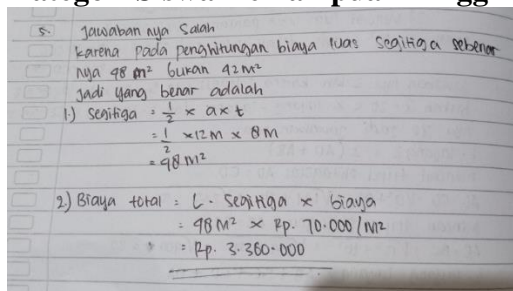 5. Jawaban nya Salah
karena pada penghitungan biaya luas segitiga sebenar
nya 48 m² bukan 42 m²
Jadi yang benar adalah
1.) Segitiga = 1/2 x a x t
= 1/2 x 12 m x 8 m
= 48 m²
2.) Biaya total = L. Segitiga x biaya
= 48 m² x Rp. 70.000 / m2
= Rp. 3.360.000